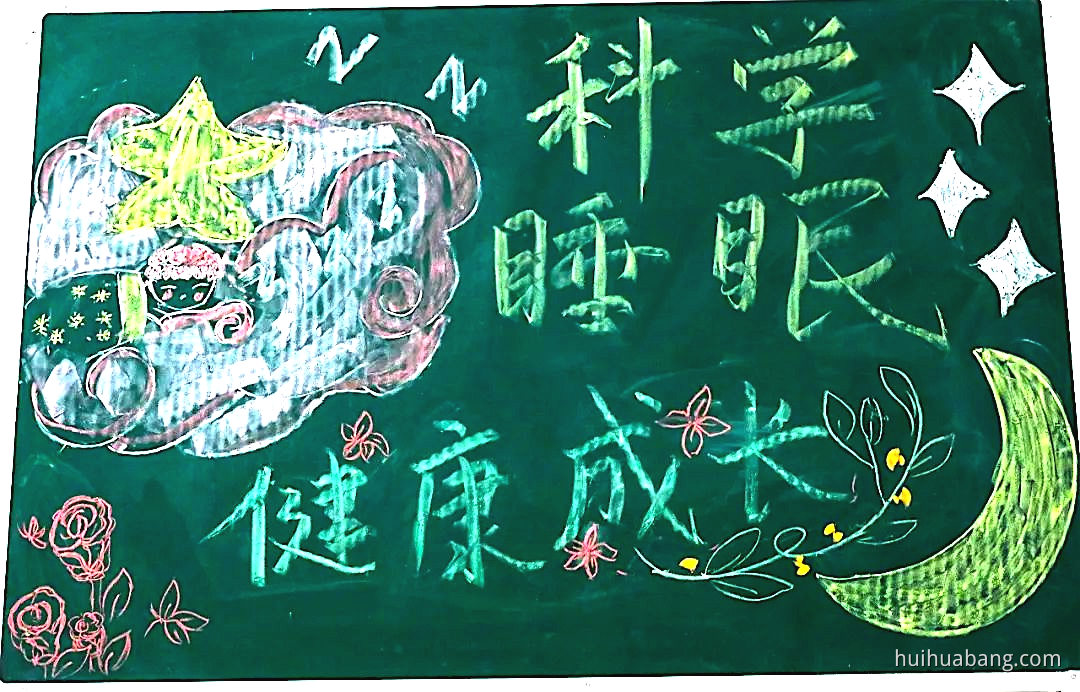 科学
睡眠
健康成长
z
z
z
huihuabang.com